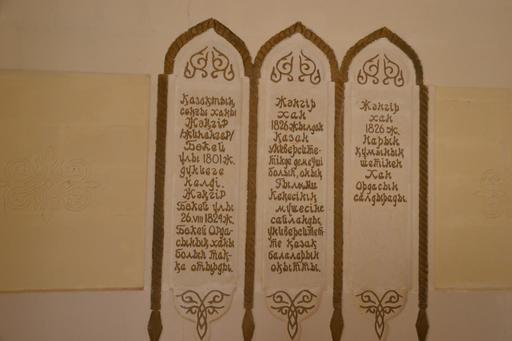 Қазақтың
соңғы ханы
Жәңгір
/Жиһангер/
Бөкей
ұлы 1801 ж.
дүниеге
келді.
Жәңгір
Бөкей ұлы
26.VIII 1824 ж.
Бөкей Орда-
сының ханы
болып тақ-
қа отырды.
Жәңгір
хан
1826 жылдан
Қазан
университе-
тінде демеуші
болып, оның
Ғылыми
Кеңесінің
мүшесіне
сайланды
университет-
те қазақ
балаларын
оқытты.
Жәңгір
хан
1826 ж.
Нарын
құмының
шетінен
Хан
Ордасын
салдырады